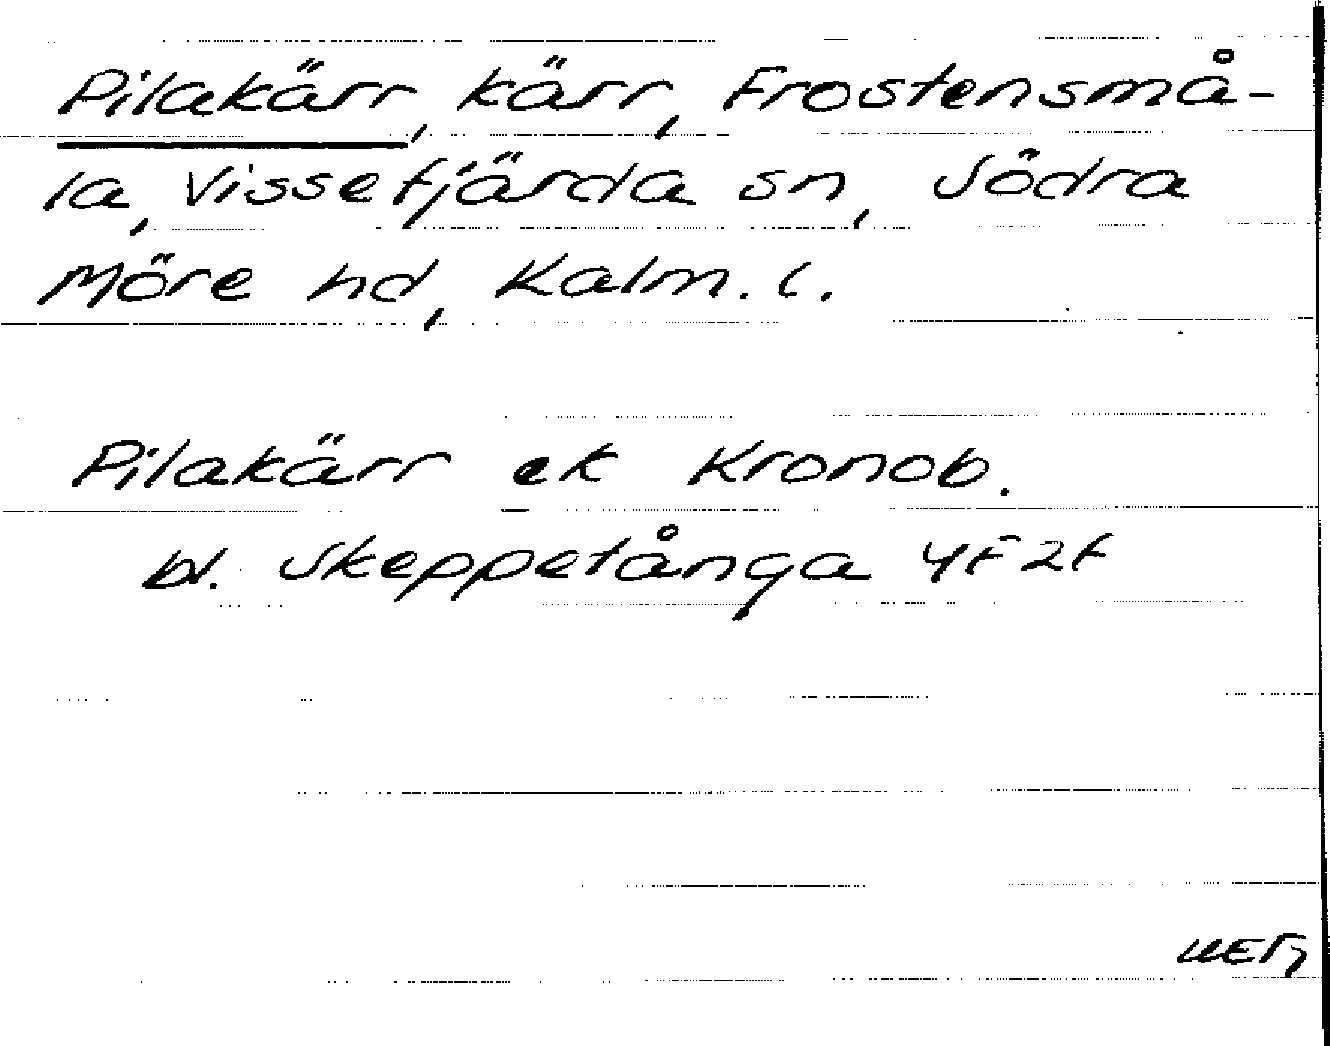 Pilakärr, kärr, Frostensmå-
la, Vissefjärda sn, Södra
Möre hd, Kalm. l.
Pilakärr ek Kronob.
bl. Skeppetånga 4F2f